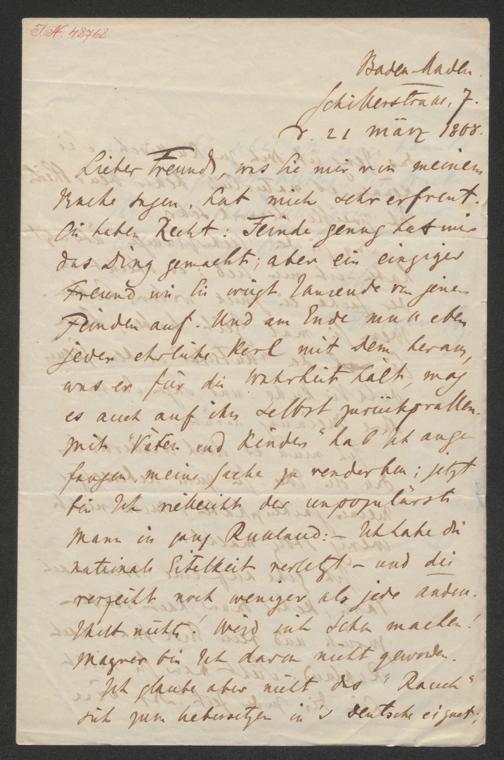 I.N. 48768
Baden-Baden.
Schillerstrasse, 7.
d. 21 März 1868.
Lieber Freund, was Sie mir von meinem
Buche sagen, hat mich sehr erfreut.
Sie haben Recht: Feinde genug hat mir
das Ding gemacht; aber ein einziger
Freund wie Sie wiegt Tausende von jenen
Feinden auf. Und am Ende muss eben
jeder ehrliche Kerl mit dem heraus,
was er für die Wahrheit hält, mag
es auch auf ihn selbst zurückprallen.
Mit "Väter und Kinder" hab' ich ange
fangen meine Sache zu verderben; jetzt
bin ich vielleicht der unpopulärste
Mann in ganz Russland: – Ich habe die
nationale Eitelkeit verletzt – und die
verzeiht noch weniger als jede andere.
Thut nichts! Wird sich schon machen!
Magrer bin ich davon nicht geworden.
Ich glaube aber nicht dass "Rauch"
sich zum Uebersetzen in's Deutsche eignet,